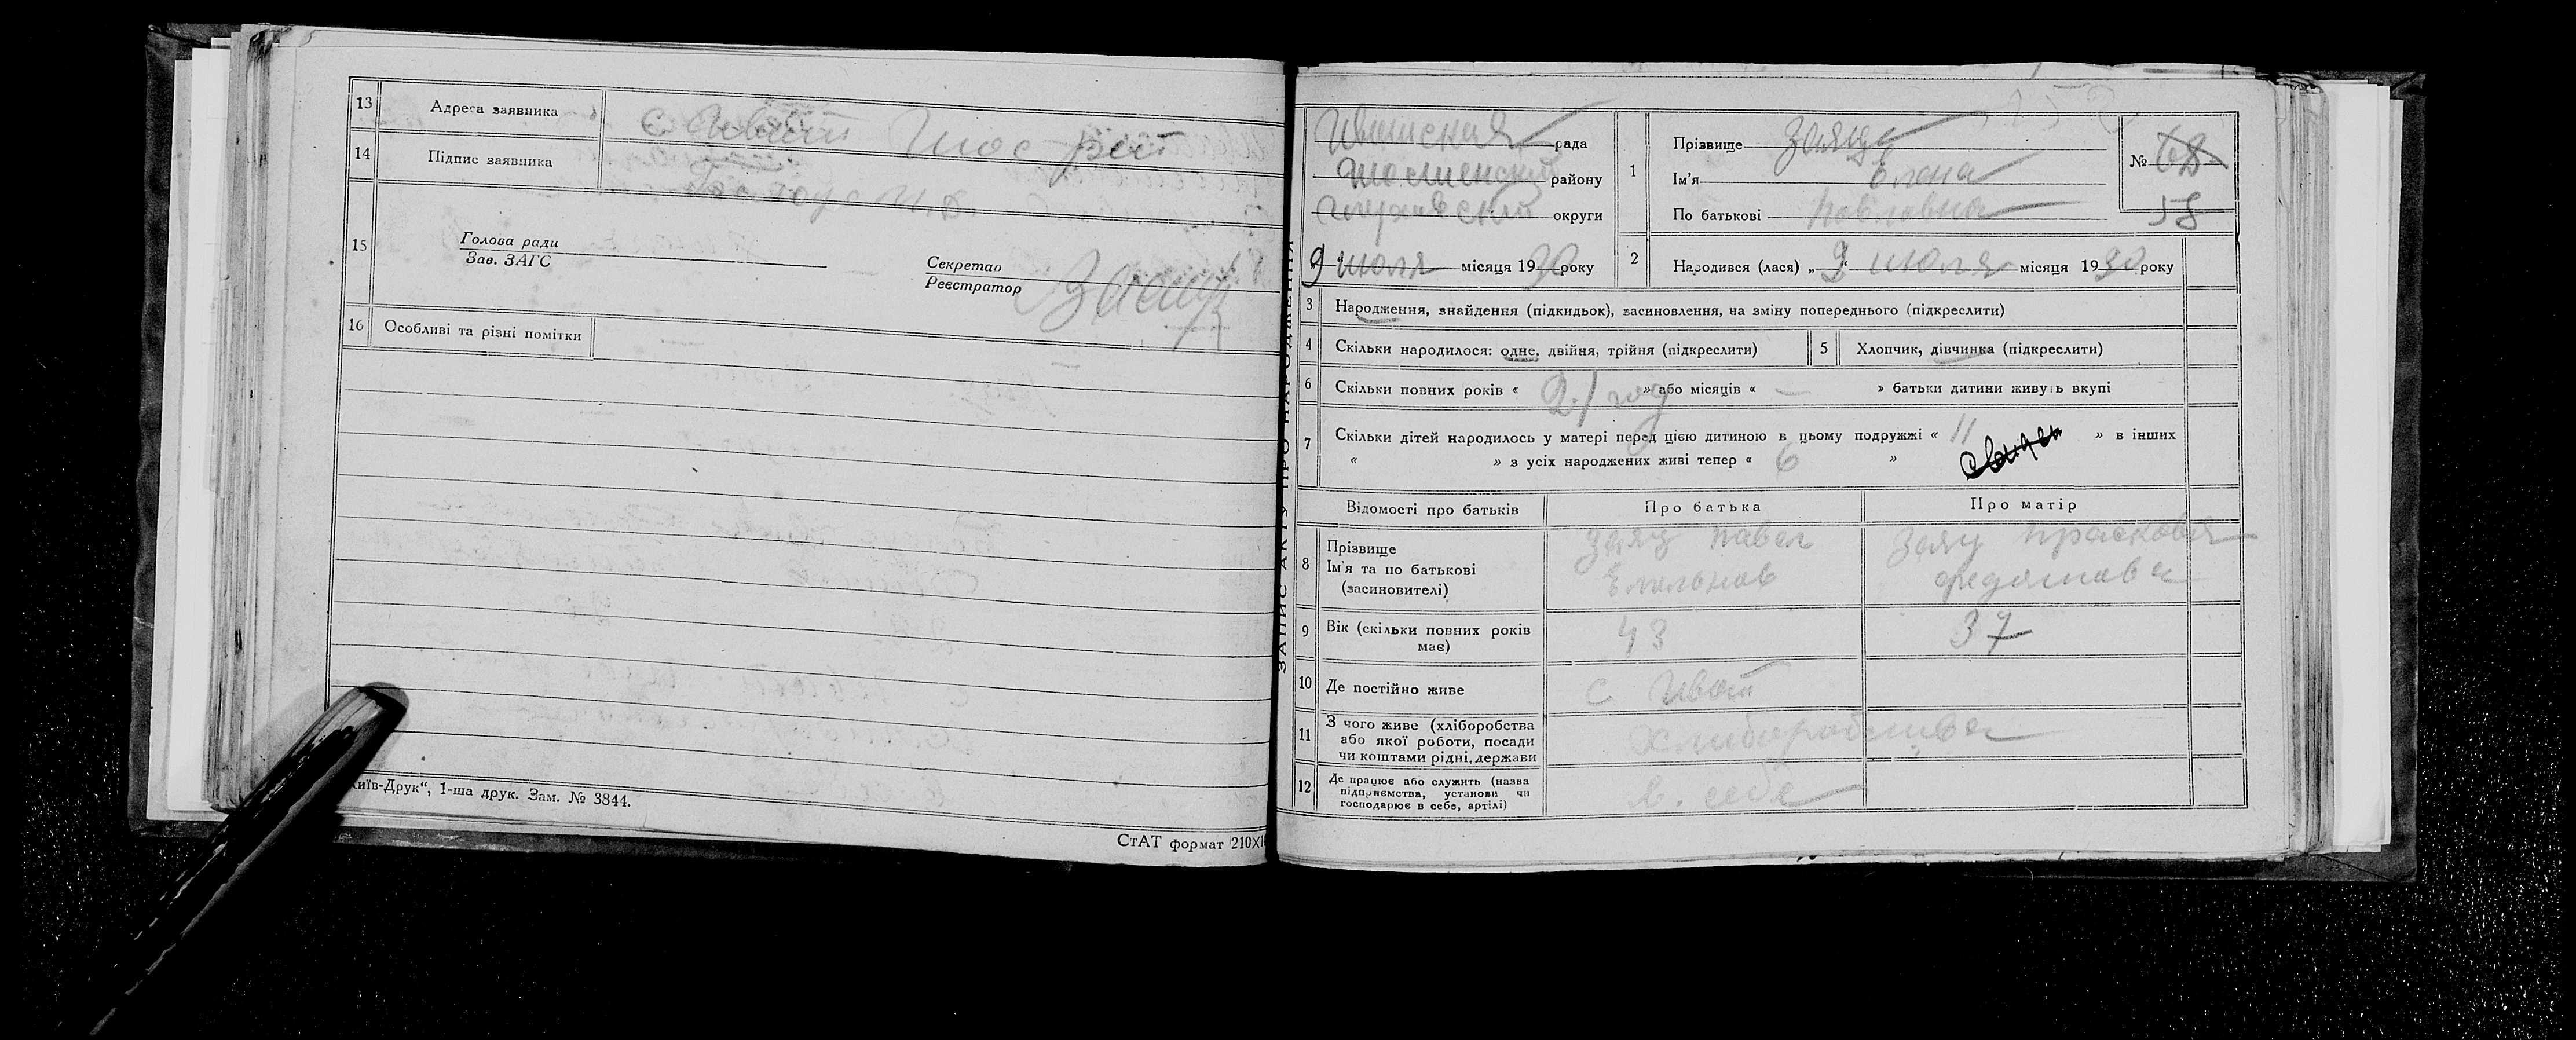 13 Адреса заявника с. Ивот Шос. рай
14 Підпис заявника
15 Голова ради
Зав. ЗАГС
Секретар
Реєстратор Заяц
16 Особливі та різні помітки
Київ-Друк“, 1-ша друк. Зам. № 3844.
СтАТ формат 210×1
ЗАПИС АКТУ ПРО НАРОДЖЕННЯ
Ивотская рада
района
округи
9 июля місяця 1930 року
1 Прізвище Заяц
Ім'я Елена
По батькові Павловна
№ 68
58
2 Народився (лася) „9“ июля місяця 1930 року
3 Народження, знайдення (підкидьок), засиновлення, на зміну попереднього (підкреслити)
4 Скільки народилося: одне, двійня, трійня (підкреслити)
5 Хлопчик, дівчинка (підкреслити)
6 Скільки повних років « 21 год » або місяців « — » батьки дитини живуть вкупі
7 Скільки дітей народилось у матері перед цією дитиною в цьому подружжі « 11 » в інших
« » з усіх народжених живі тепер « 6 »
Відомості про батьків
Про батька
Про матір
8 Прізвище
Ім'я та по батькові
(засиновителі)
Заяц Павел
Заяц Прасковья
9 Вік (скільки повних років
має)
43
37
10 Де постійно живе
с Ивот
11 З чого живе (хліборобства
або якої роботи, посади
чи коштами рідні, держави
12 Де працює або служить (назва
підприємства, установи чи
господарює в себе, артілі)
в. себе